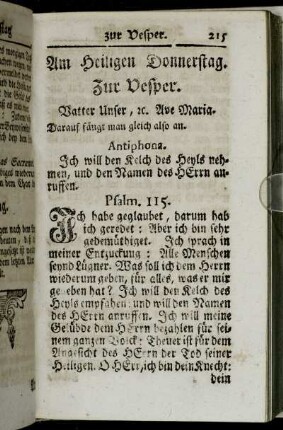 zur Vesper. 215
Am Heiligen Donnerstag.
Zur Vesper.
Vatter Unser, ꝛc. Ave Maria.
Darauf fängt man gleich also an.
Antiphona.
Ich will den Kelch des Heyls neh-
men, und den Namen des HErrn an-
ruffen.
Psalm. 115.
Ich habe geglaubet, darum hab
ich geredet: Aber ich bin sehr
gedemüthiget. Ich sprach in
meiner Entzuckung: Alle Menschen
seynd Lügner. Was soll ich dem Herrn
wiederum geben, für alles, was er mir
gegeben hat? Ich will den Kelch des
Heyls empfahen und will den Namen
des HErrn anruffen. Ich will meine
Gelübde dem HErrn bezahlen für sei-
nem ganzen Volck: Theuer ist für dem
Angesicht des HErrn der Tod seiner
Heiligen. O HErr, ich bin dein Knecht:
dein